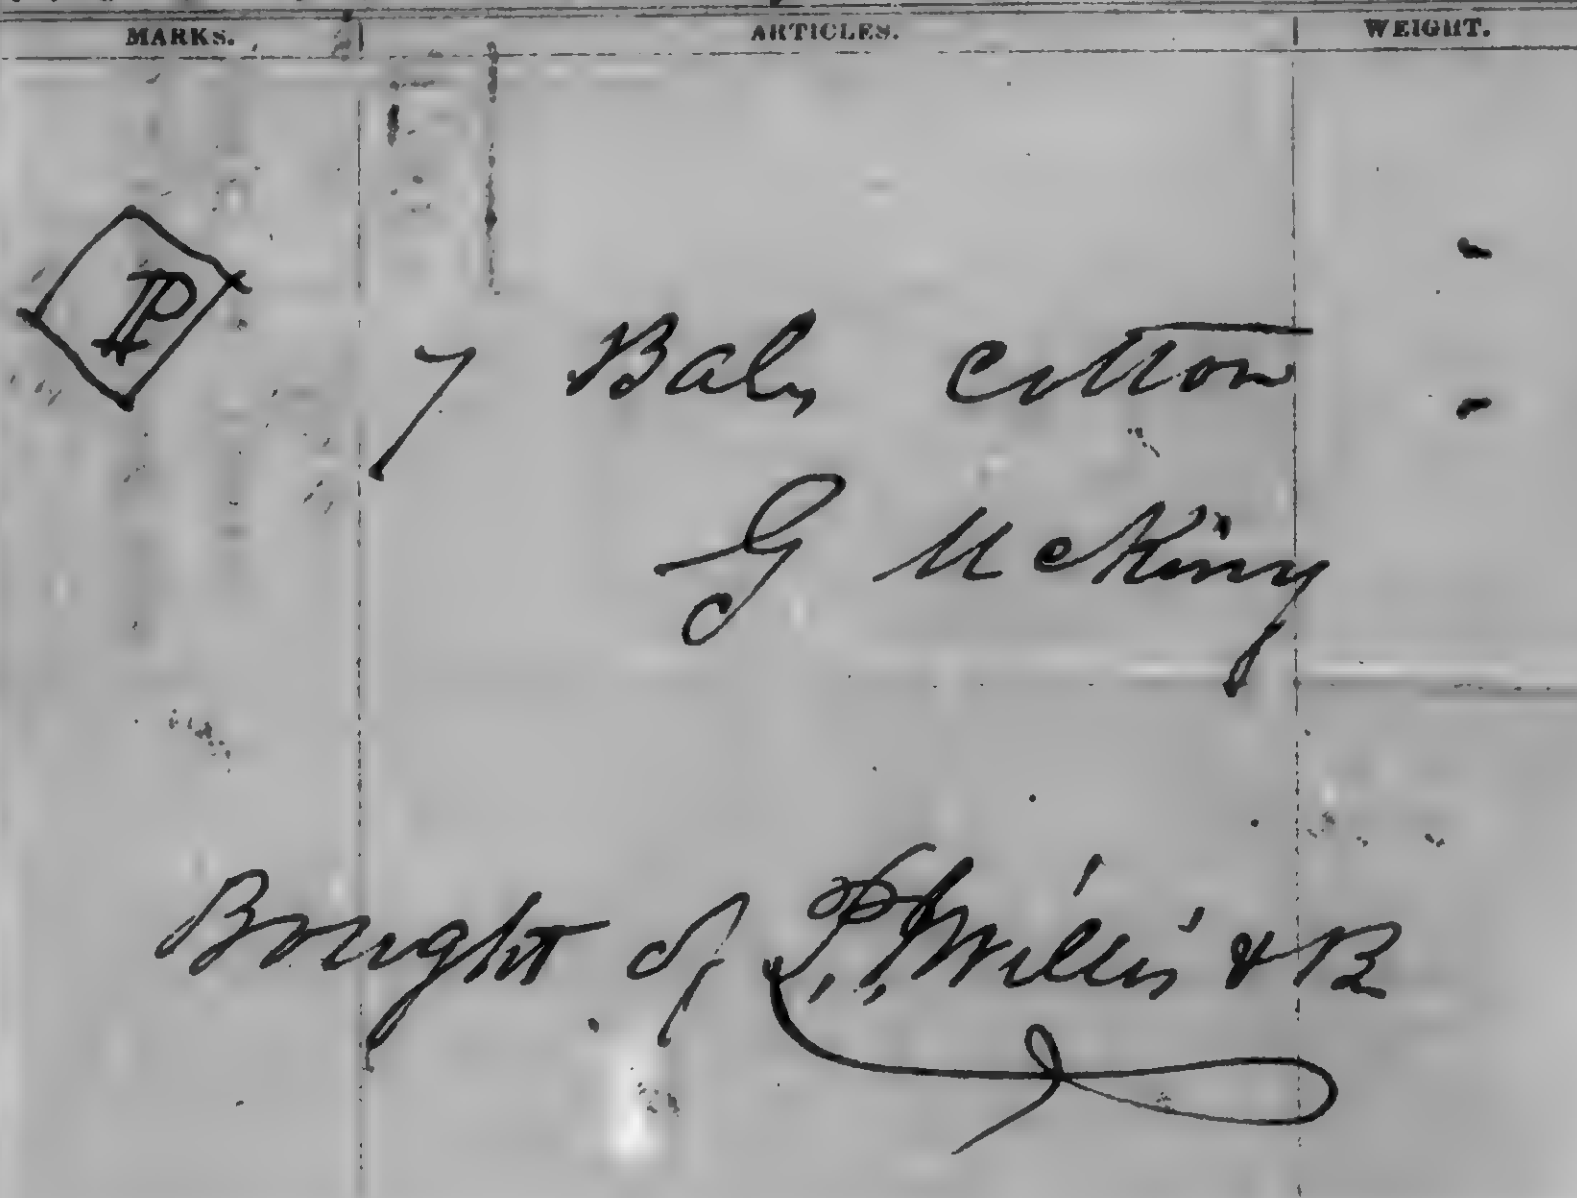 MARKS. ARTICLES. WEIGHT.
IP
7 Bals Cotton
G McKiny
Bought of Willis & B